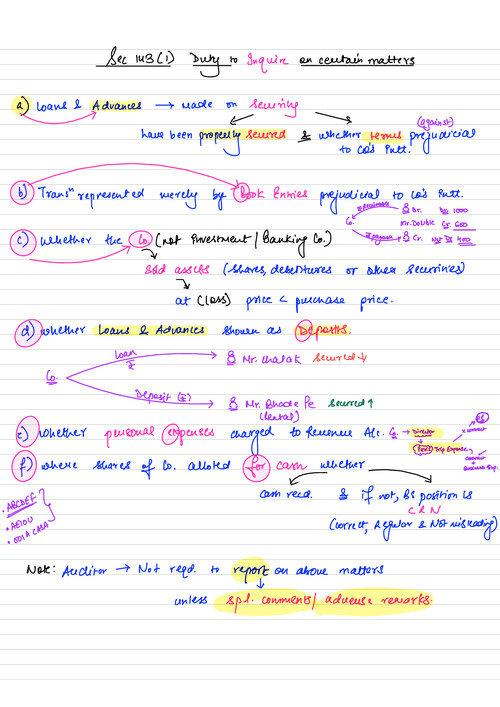 Sec 143(1) Duty to Inquire on certain matters
a) Loans & Advances → Made on security
(against)
have been properly secured & whether terms prejudicial
to Co's Intt.
b) Transⁿ represented merely by Book Entries prejudicial to Co's Intt.
c) Whether the Co (not Investment/Banking Co.)
Co.
Dr. 1000
Mr. Double Cr. 600
Cr. Net Dr 400
Sold assets (Shares, debentures or other securities)
at (loss) price < purchase price.
d) whether Loans & Advances shown as Deposits.
Loan
Mr. Chalak Secured ↓
Co.
Deposit
Mr. Bhade Pe Secured ↑
(Rental)
e) Whether personal expenses charged to Revenue A/c. Co → Director
Trip Expense
f) where shares of Co. alloted for cash whether
cash recd. & if not, BS position is
C R N
(Correct, Regular & Not misleading)
• ABCDEF
• AEIOU
Note: Auditor → Not reqd. to report on above matters
unless Spl. comments/ adverse remarks.